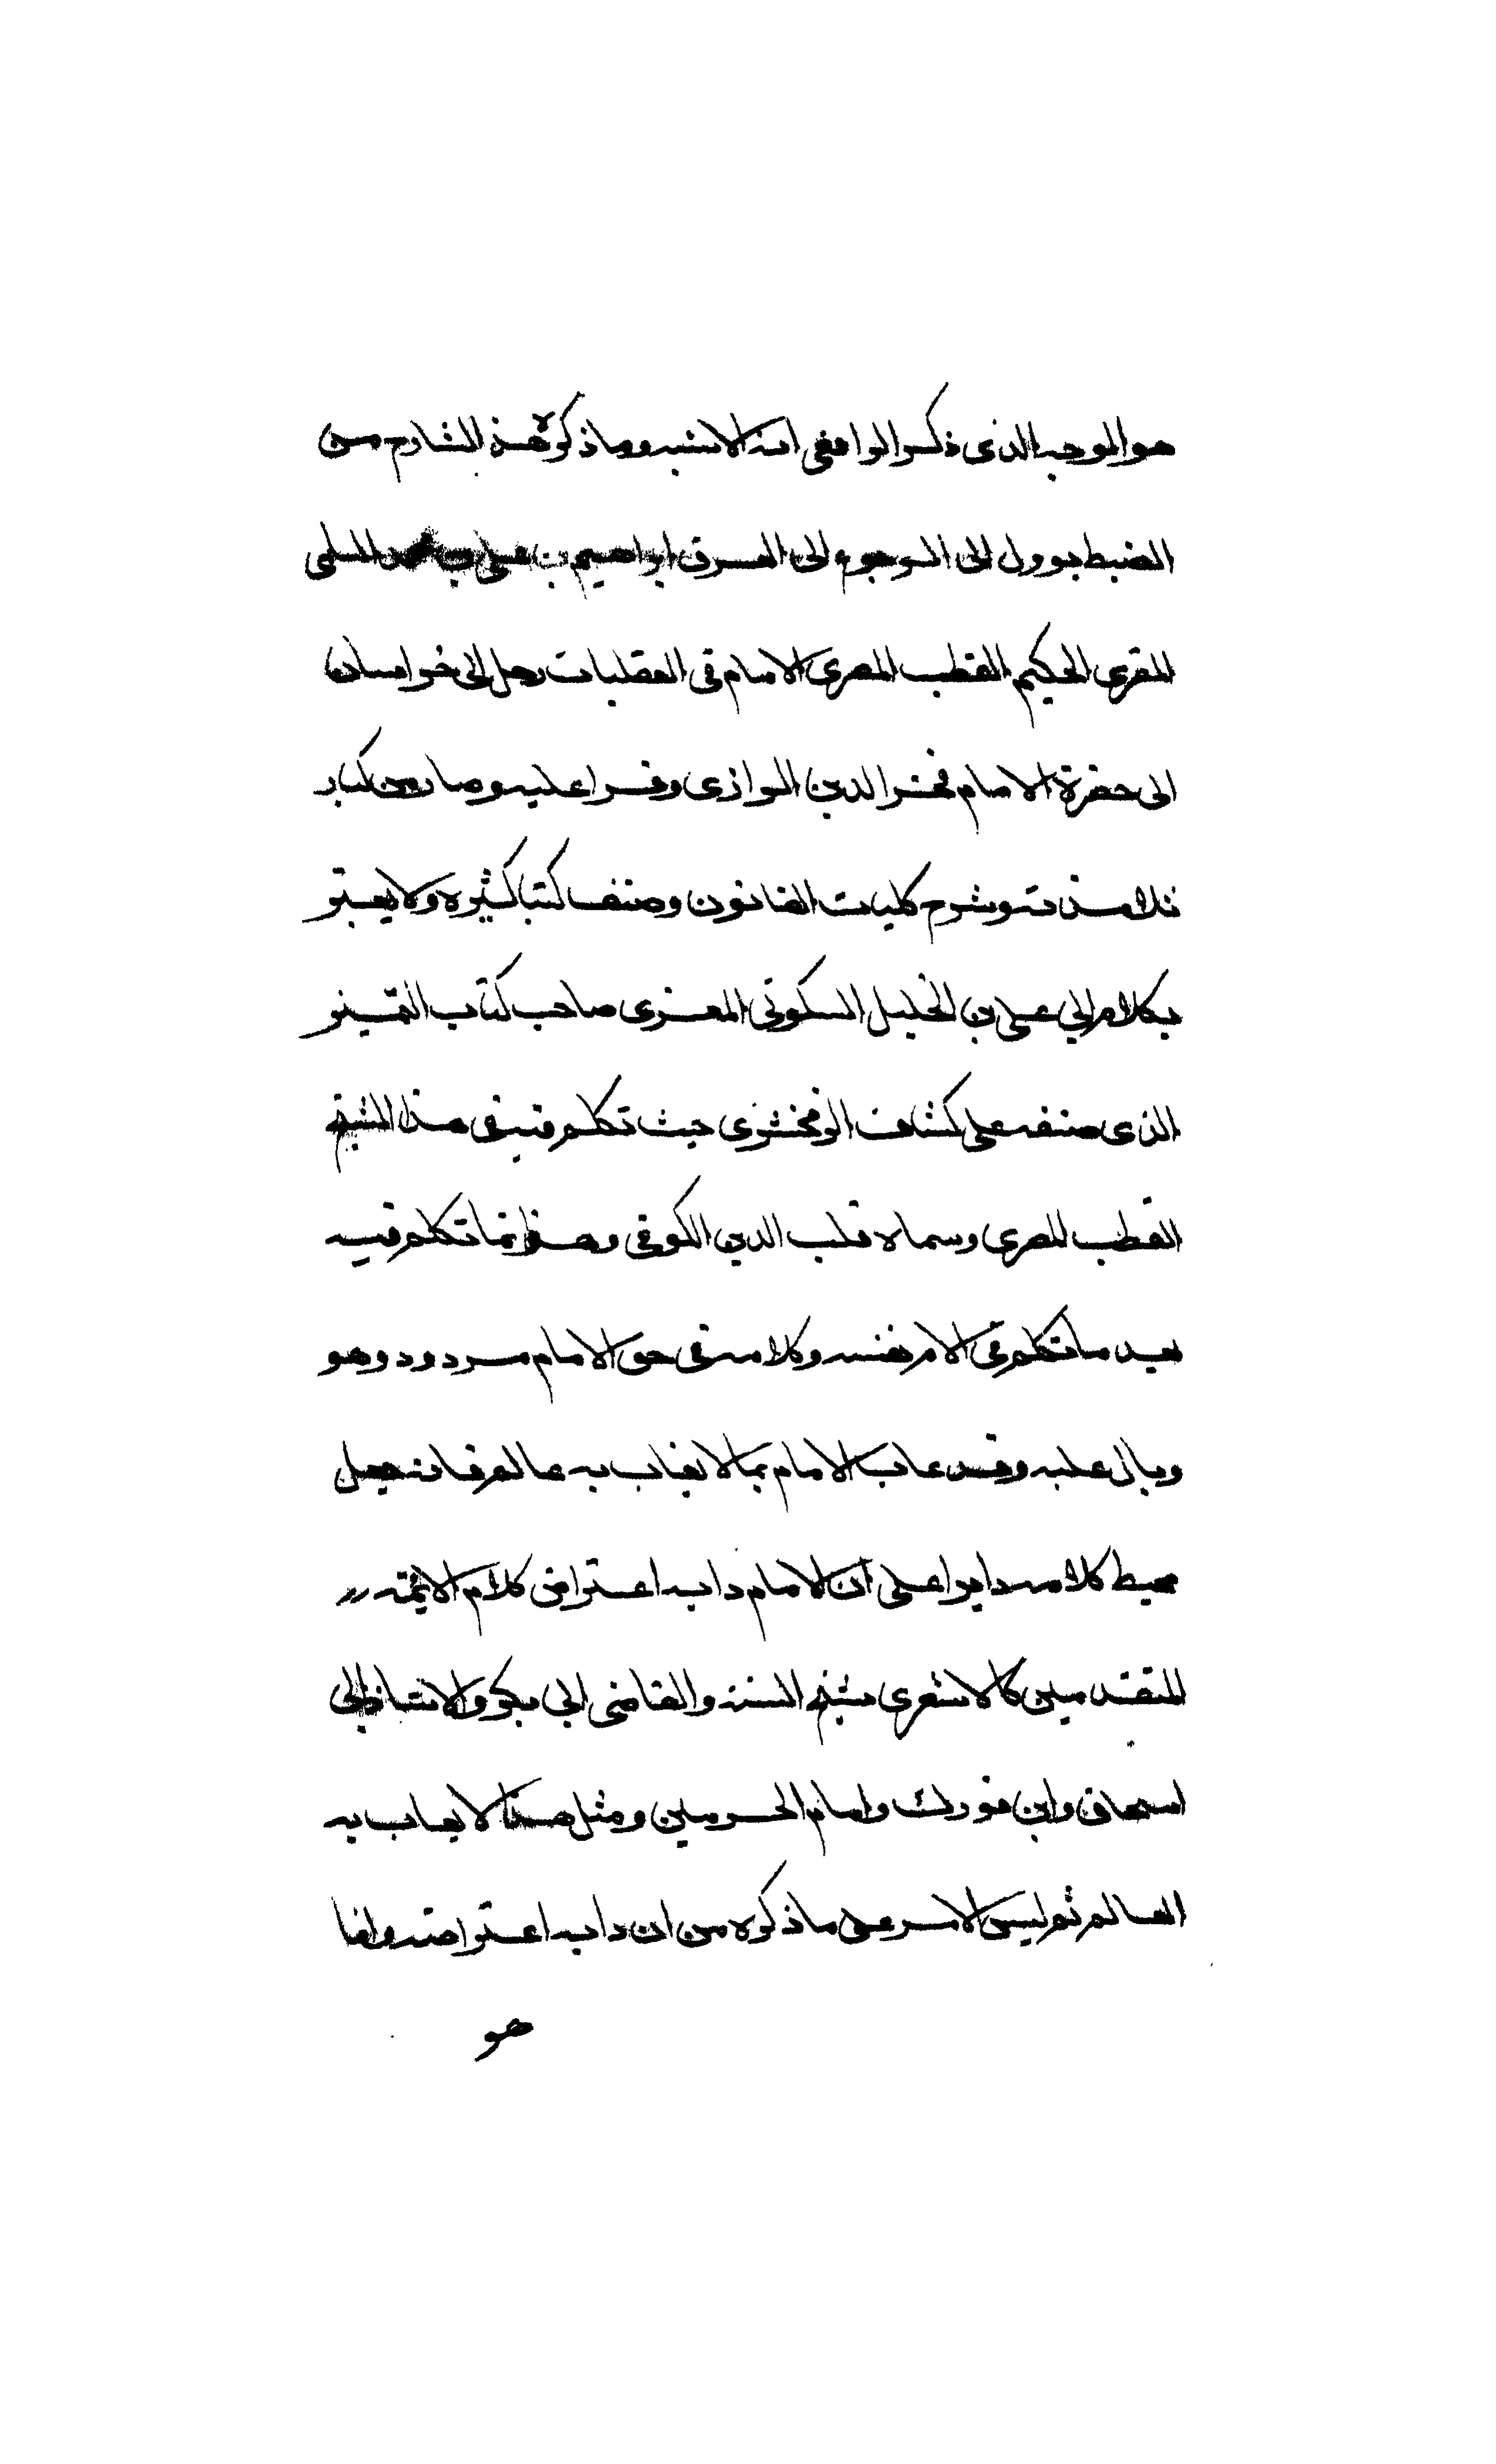 هو الوجه الذى ذكر الرافعى انه الاشبه وما ذكره هذا الشارح من
الضبط يوول الى الرجوع الى العرف ابراهيم بن على بن محمد السلمى
المغربى الحكيم القطب المصرى الامام فى العقليات رحل الى خراسان
الى حضرة الامام فخر الدين الرازى وقرا عليه وصار من كبار
تلامذته وشرح كليات القانون وصنف كتبا كثيره ولا يعتبر
بكلام ابى على بن الخليل السكونى المغربى صاحب كتاب التمييز
الذى صنفه على كشاف الزمخشرى حيث تكلم فيه فى هذا الشيخ
القطب المصرى وسماه قلب الدين الكوفى وهذا انما تكلم فيه
بعد ما تكلم فى الامام نفسه وكلامه فى حق الامام مردود وهو
وبال عليه وقد عاب الامام بما لا يعاب به عالم فانه جعل
محيط كلامه دايرا على ان الامام دابه اعتراض كلام الائمة
المتقدمين كالاشعرى شيخ السنة والقاضى ابى بكر والاستاذ ابى
اسحاق وابن فورك وامام الحرمين ومثل هذا لا يعاب به
العالم ثم ليس الامر على ما ذكره من ان دابه اعتراضه وانما
هو